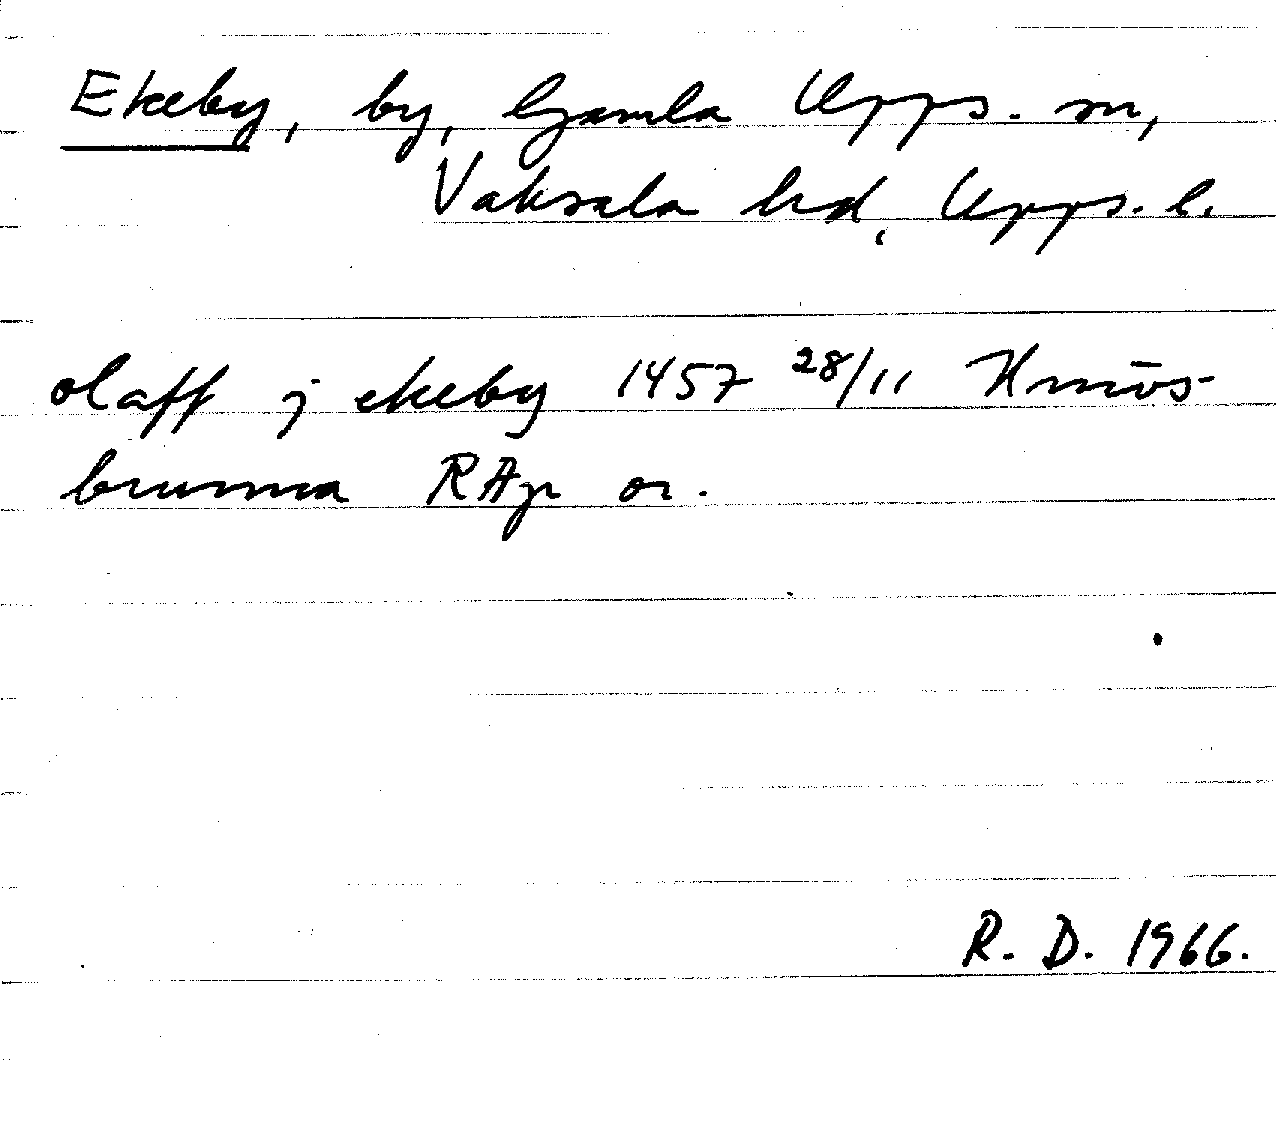 Ekeby, by, Gamla Upps. sn,
Vaksala hd, Upps. l.
olaff j ekeby 1457 28/11 Knivs-
brunna RAp or.
R. D. 1966.